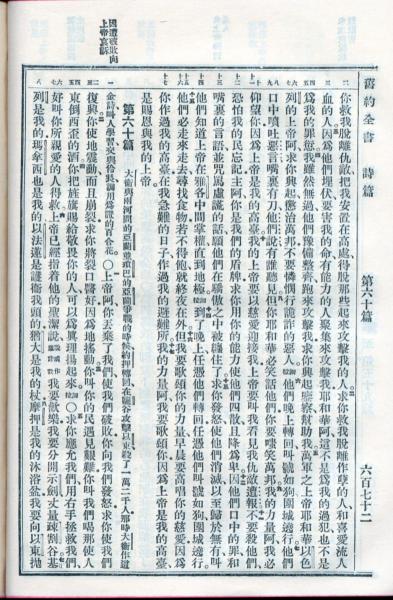 舊約全書 詩篇 第六十篇 六百七十二
你救我脫離仇敵把我安置在高處得脫那些起來攻擊我的人求你救我脫離作孽的人和喜愛流人
血的人因為他們埋伏要害我的命有能力的人聚集來攻擊我耶和華阿這不是為我的過犯也不是
為我的罪愆我雖然無過他們豫備整齊跑來攻擊我求你興起鑒察幫助我萬軍之上帝耶和華以色
列的上帝阿求你興起懲治萬邦不要憐憫行詭詐的惡人細拉他們晚上轉回叫號如狗圍城遶行他們
口中噴吐惡言嘴裏有刀他們說有誰聽見但你耶和華必笑話他們你要嗤笑萬邦我的力量阿我必
仰望你因為上帝是我的高臺我的上帝要以慈愛迎接我上帝要叫我看見我仇敵遭報不要殺他們
恐怕我的民忘記主阿你是我們的盾牌求你用你的能使他們四散且降為卑因他們口中的罪和
嘴裏的言語並咒罵虛謊的話願他們在驕傲之中被纏住了求你發怒使他們消滅以至歸於無有叫
他們知道上帝在雅各中間掌權直到地極細拉到了晚上任憑他們轉回任憑他們叫號如狗圍城遶行
他們必走來走去尋找食物若不得飽就終夜在外但我要歌頌你的力量早晨要高唱你的慈愛因為
你作過我的高臺在我急難的日子作過我的避難所我的力量阿我要歌頌你因為上帝是我的高臺
是賜恩與我的上帝
第六十篇 大衛與兩河間的亞蘭並瑣巴的亞蘭爭戰的時候約押轉回在鹽谷攻擊以東殺了一萬二千人那時大衛作這
金詩叫人學習交與伶長調用為證的百合花○上帝阿你丟棄了我們使我們破敗你向我們發怒求你使我們
復興你使地震動而且崩裂求你將裂口醫好因為地搖動你叫你的民遇見艱難你叫我們喝那使人
東倒西歪的酒你把旌旗賜給敬畏你的人可以為真理揚起來細拉○求你應允我們用右手拯救我們
好叫你所親愛的人得救上帝已經指着他的聖潔說我要歡樂我要分開示劍丈量疎割谷基
列是我的瑪拿西也是我的以法蓮是護衛我頭的猶大是我的杖摩押是我的沐浴盆我要向以東拋
因遭破敗向
上帝哀訴